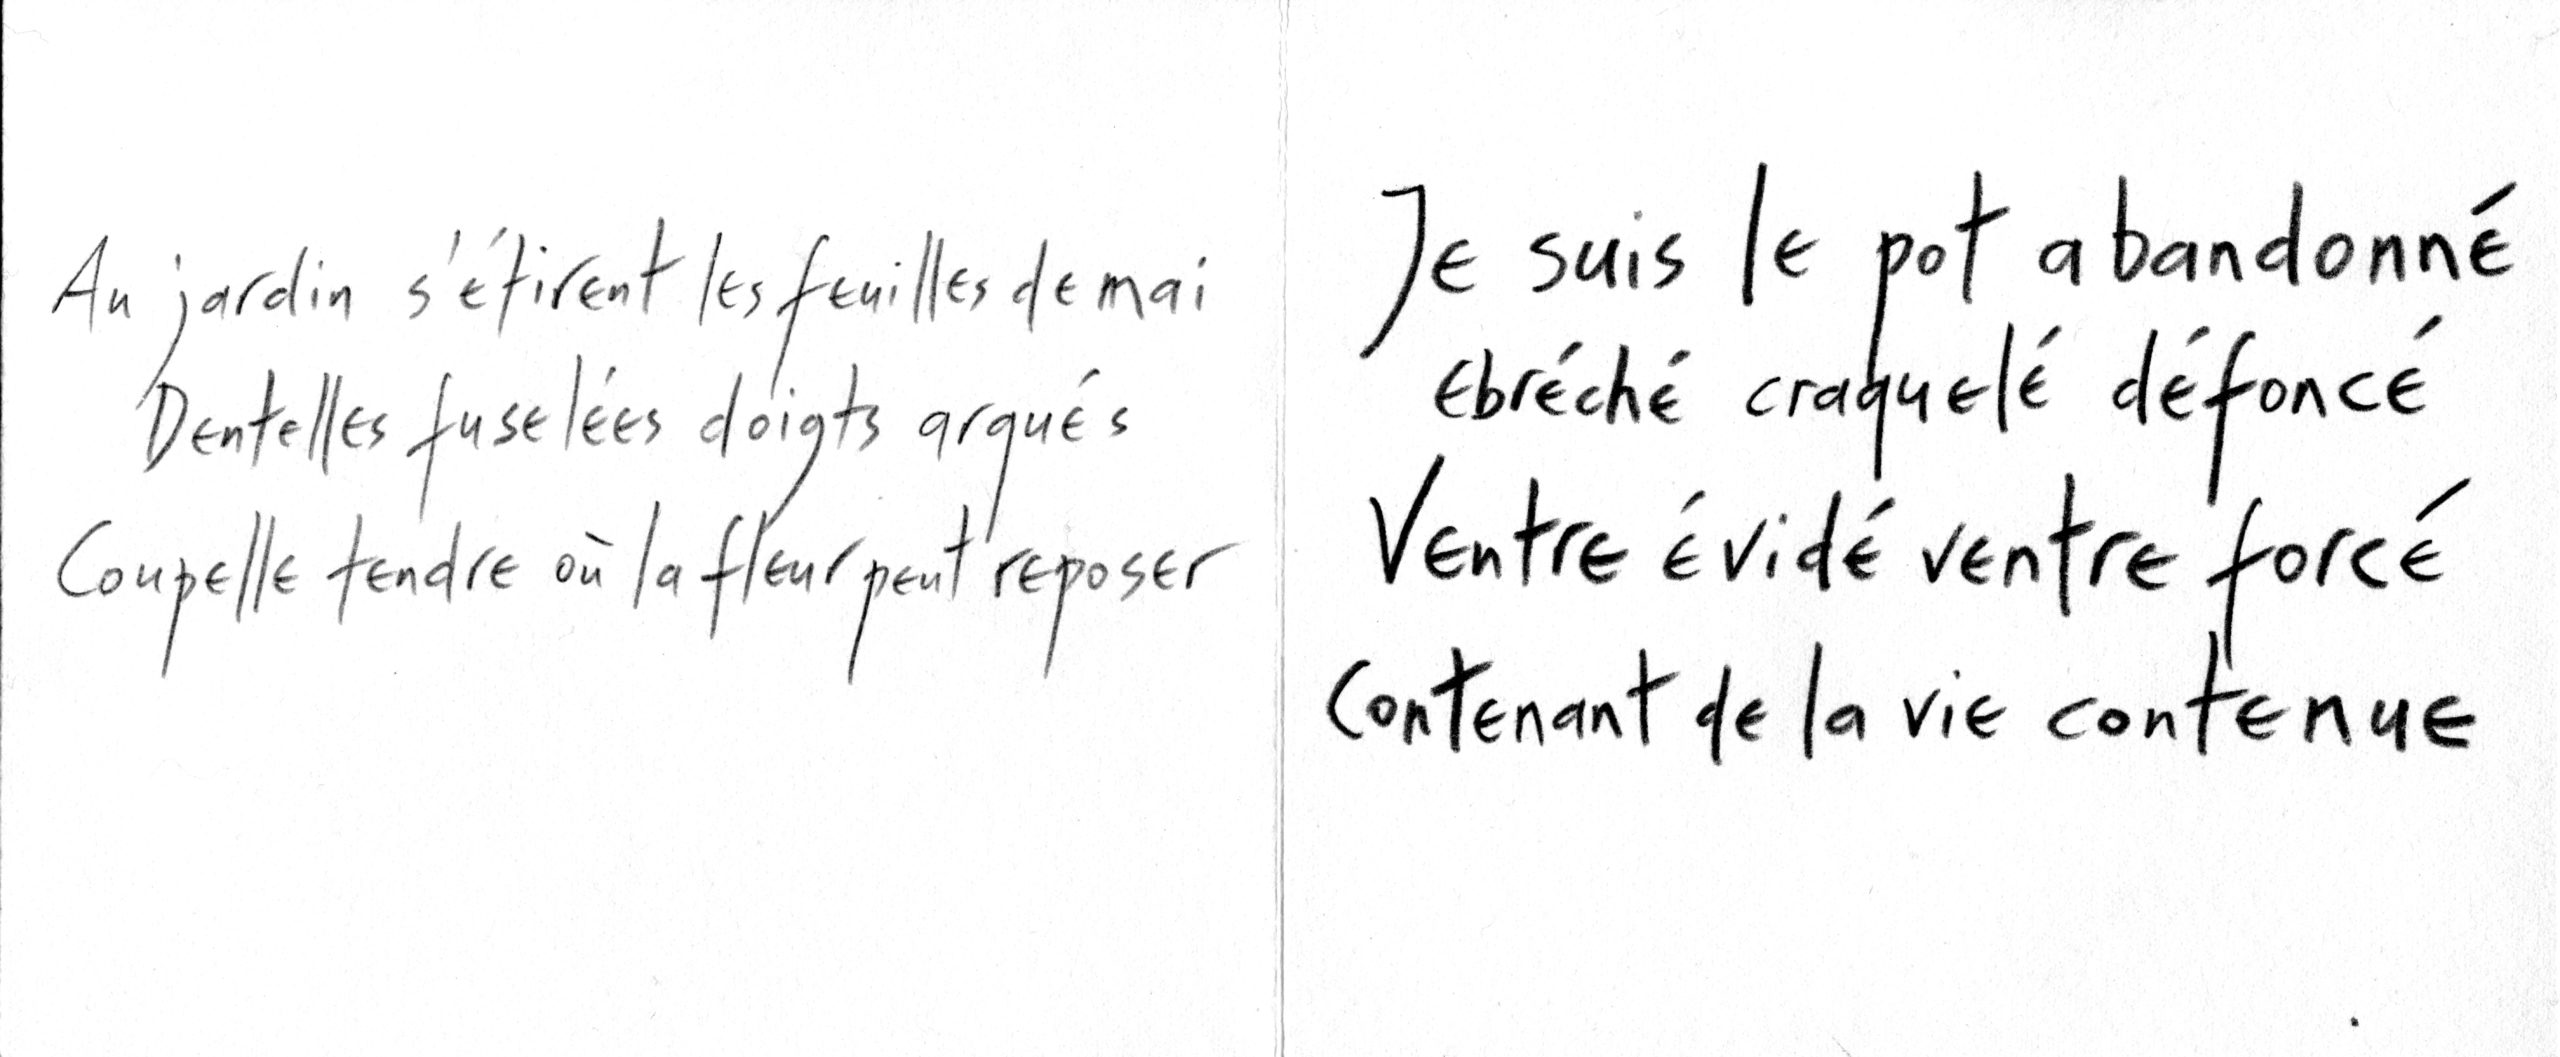 Au jardin s'étirent les feuilles de mai
Dentelles fuselées doigts arqués
Coupelle tendre où la fleur peut reposer
Je suis le pot abandonné
ebréché craquelé défoncé
Ventre évidé ventre forcé
Contenant de la vie contenue